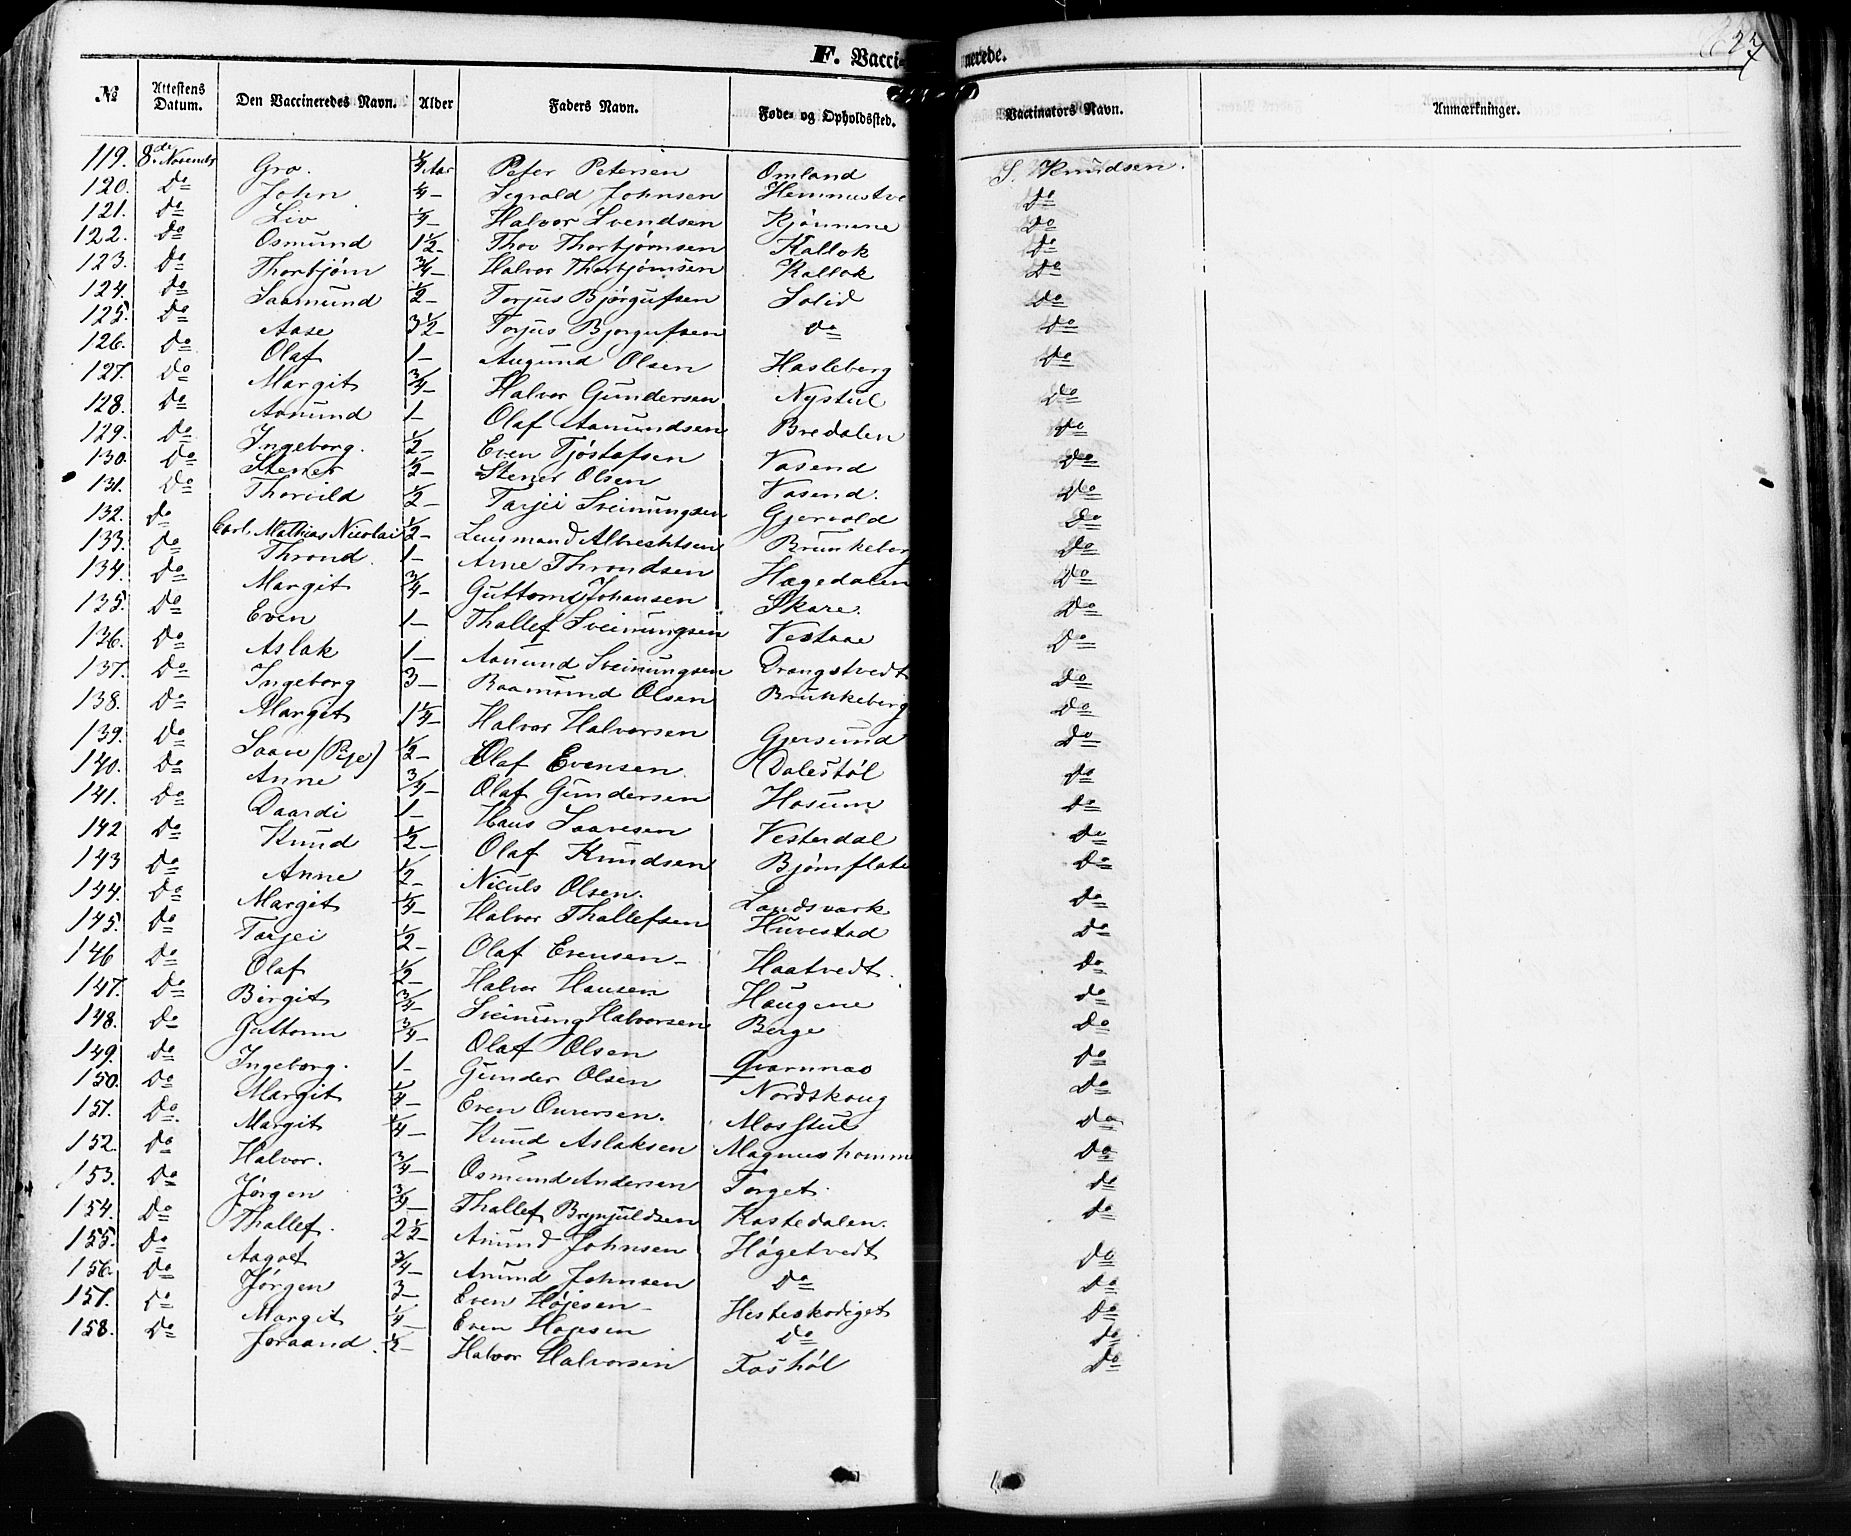 F. Vaccinerede.
257
№ | Attestens Datum. | Den Vaccineredes Navn. | Alder | Faders Navn. | Føde- og Opholdssted. | Vaccinators Navn. | Anmærkninger.
119. 8de Novemb. Gro. 1/4 Aar Peter Petersen Omland S. Knudsen.
120. Do John 1/4 – Johnsen Do
121. Do Liv 1/4 – Halvor Svendsen Kjønnene Do
122. Do Osmund 1 1/2 – Thov Thorbjørnsen Kallok Do
123. Do Thorbjørn 3/4 – Halvor Thorbjørnsen Kallok Do
124. Do Saamund 1/2 – Torjus Bjørgufsen Solid Do
125. Do Aase 3 1/2 – Torjus Bjørgufsen Do Do
126. Do Olaf 1 – Augund Olsen Hasleberg Do
127. Do Margit 3/4 – Halvor Gundersen Nystul Do
128. Do Amund 1 – Olaf Aamundsen Bredalen Do
129. Do Ingeborg. 1/2 – Even Tjøstofsen Vasend Do
130. Do Stener 1/2 – Stener Olsen Vasend. Do
131. Do Thorvild 1/2 – Tarjei Sveinungsen Gjervold Do
132. Do Carl Mathias Nicolai 1/2 – Lensmand Albrechtsen Brunkeberg Do
133. Do Thrond. 1 – Arne Throndsen Hægedalen Do
134. Do Margit 3/4 – Guttorm Johansen Skare. Do
135. Do Even 1 – Thallef Sveinungsen Vestaae Do
136. Do Aslak 1 – Aamund Sveinungsen Drangstvedt Do
137. Do Ingeborg 3 – Raamund Olsen Brunkeberg Do
138. Do Margit 1 1/4 – Halvor Halvorsen Gjersund Do
139. Do Saave (Pige) 1/2 – Olaf Evensen Dalestøl Do
140. Do Anne 3/4 – Olaf Gundersen Hosum Do
141. Do Daardi 1 – Hans Saavesen Vesterdal Do
142 Do Knud 1/2 – Olaf Knudsen Bjørnflate Do
143 Do Anne 1/2 – Niculs Olsen. Landsvark Do
144. Do Margit 1/4 – Halvor Thallefsen Huvestad Do
145. Do Tarjei 1/2 – Olaf Evensen – Haatvedt. Do
146 Do Olaf 1/2 – Halvor Hansen Haugene Do
147. Do Birgit 3/4 – Sveinung Halvorsen Berge Do
148. Do Guttorm 3/4 – Olaf Olsen Qvarnnæs Do
149. Do Ingeborg. 1 – Gunder Olsen Nordskoug Do
150. Do Margit 1/4 – Even Onversen. Mosstul Do
151. Do Margit 1/4 – Knud Aslaksen Magnushomme Do
152. Do Halvor. 3/4 – Osmund Andersen Torget. Do
153. Do Jørgen 3/4 – Thallef Brynjuldsen Kastedalen. Do
154. Do Thallef. 2 1/2 – Anund Johnsen Høgetvedt Do
155. Do Aagot 3/4 – Anund Johnsen Do Do
156. Do Jørgen 3 – Even Højesen – Hesteskodiget Do
157. Do Margit 1/4 – Even Højesen Do Do
158. Do Joraand. 1/2 – Halvor Halvorsen Foshøl Do